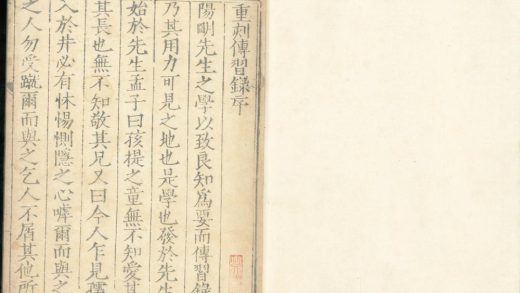 重刻傳習錄序
陽明先生之學以致良知爲要而傳習錄
乃其用力可見之地也是學也發於先生
始於先生孟子曰孩提之童無不知愛其
其長也無不知敬其兄又曰今人乍見孺
入於井必有怵惕惻隱之心嘑爾而與之
之人勿受蹴爾而與之乞人不屑其他所